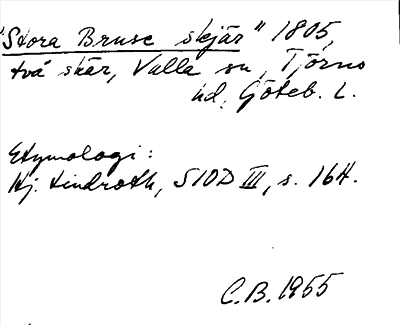 "Stora Bruse skjär" 1805,
två skär, Valla sn, Tjörns
hd, Göteb. L.
Etymologi:
Hj. Lindroth, SIOD III, s. 164.
C.B. 1955